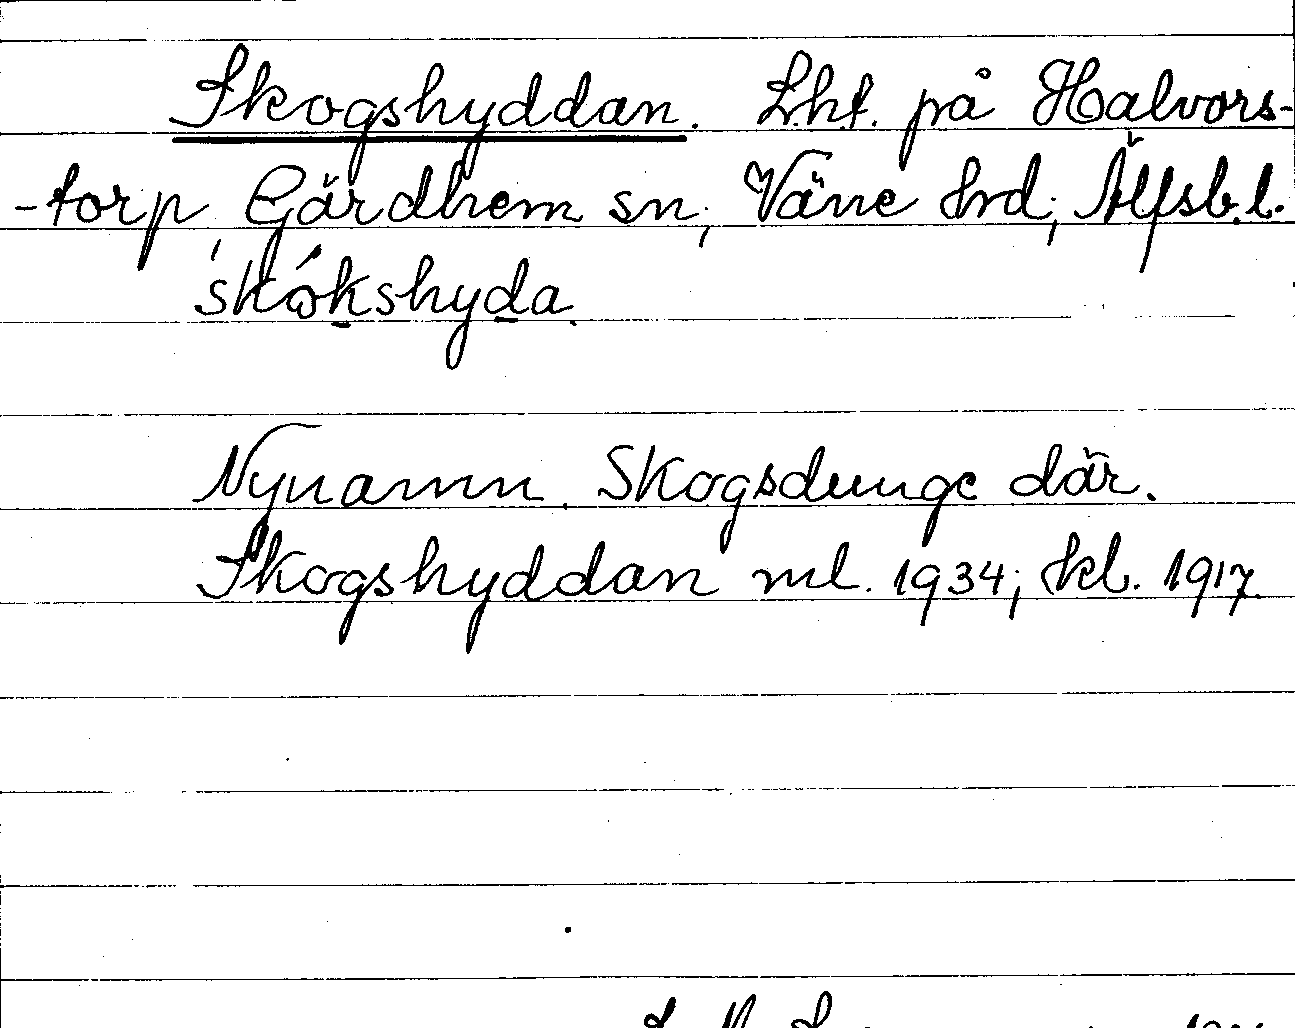 Skogshyddan. Lht. på Halvors-
-torp, Gärdhem sn, Väne hd, Älfsb. l.
skókshyda.
Nynamn. Skogsdunge där.
Skogshyddan ml. 1934; hkl. 1917.